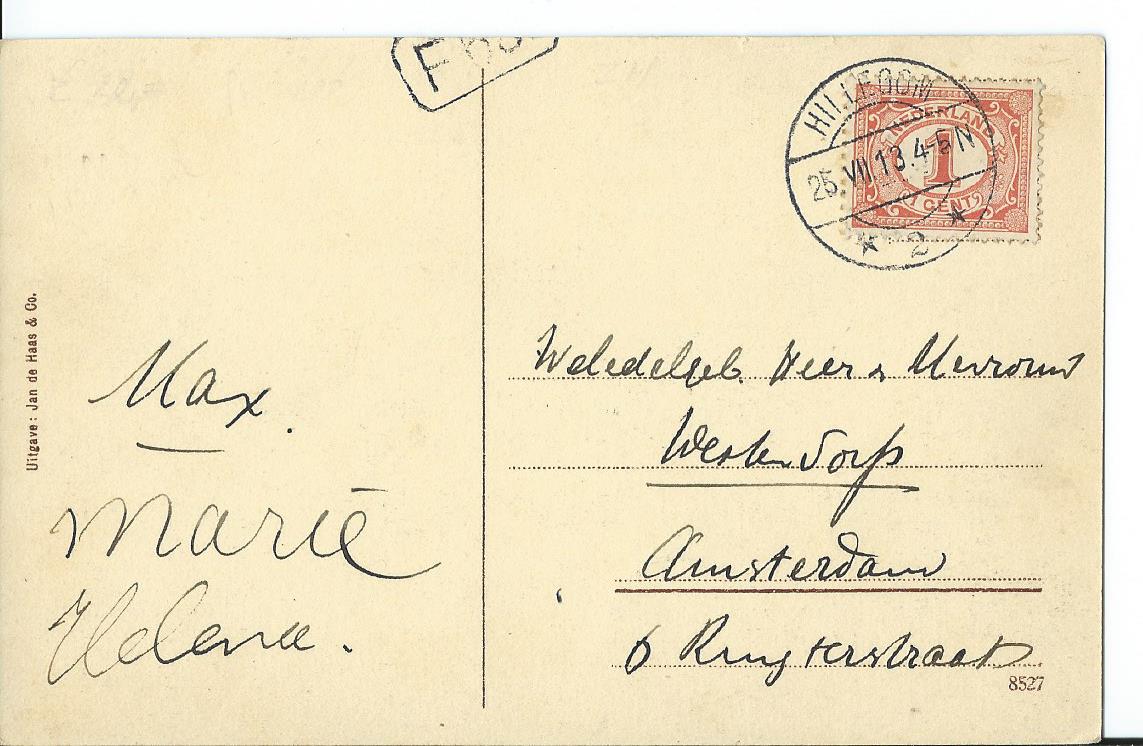 F
HILLEGOM
25.VII.13.4-5N
2
NEDERLAND
1
1 CENT
Uitgave: Jan de Haas & Co.
Max.
Marie
Helena.
Weledelgeb. Heer & Mevrouw
Westendorp
Amsterdam
6 Ruysterstraat
8527